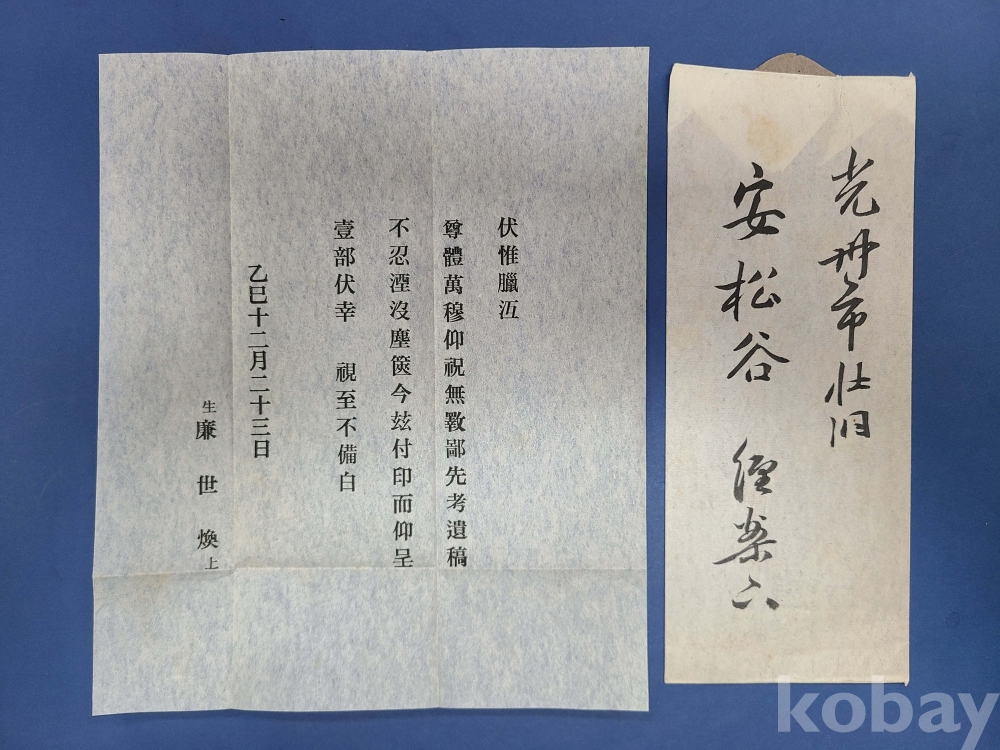 伏惟臘沍
尊體萬穆仰祝無斁鄙先考遺稿
不忍湮沒塵篋今玆付印而仰呈
壹部伏幸 視至不備白
乙巳十二月二十三日
生 廉世煥 上
光州市
安松谷 經案下
kobay